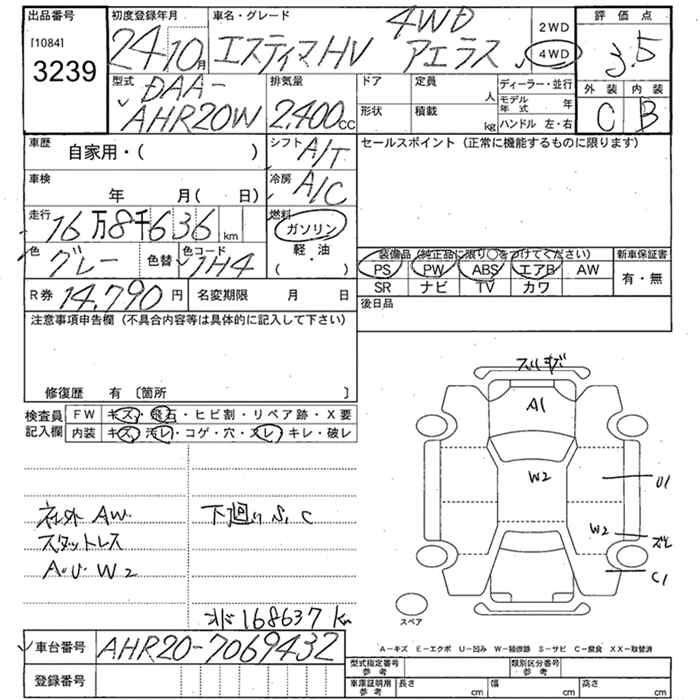 出品番号 初度登録年月 車名・グレード 4WD 2WD 評価点
[1084] 24年10月 エスティマHV アエラス 4WD 3.5
3239 外装 内装
型式 DAA- 排気量 ドア 定員 人 ディーラー・並行 C B
AHR20W 2,400cc 形状 積載 kg モデル年式 年
ハンドル 左・右
車歴 シフト A/T セールスポイント(正常に機能するものに限ります)
自家用・( )
車検 冷房 A/C
年 月( 日)
走行 16万8千636km 燃料 ガソリン
軽・油
( )
色 グレー 色替 色コード 1H4
装備品(純正品に限り○をつけてください) 新車保証書
PS PW ABS エアB AW 有・無
SR ナビ TV カワ
R券 14,790円 名変期限 月 日 後日品
注意事項申告欄(不具合内容等は具体的に記入して下さい)
修復歴 有 〔箇所 〕
検査員記入欄 FW キズ・飛石・ヒビ割・リペア跡・X要
内装 キズ・汚レ・コゲ・穴・スレ・キレ・破レ
スリキズ
A1
W2
U1
W2 スレ
C1
スペア
社外AW 下廻りS,C
スタットレス
A・U W2
168637km
車台番号 AHR20-7069432
登録番号
A-キズ E-エクボ U-凹み W-補修跡 S-サビ C-腐食 XX-取替済
型式指定番号 参考 類別区分番号 参考
車庫証明用 参考 長さ cm 幅 cm 高さ cm